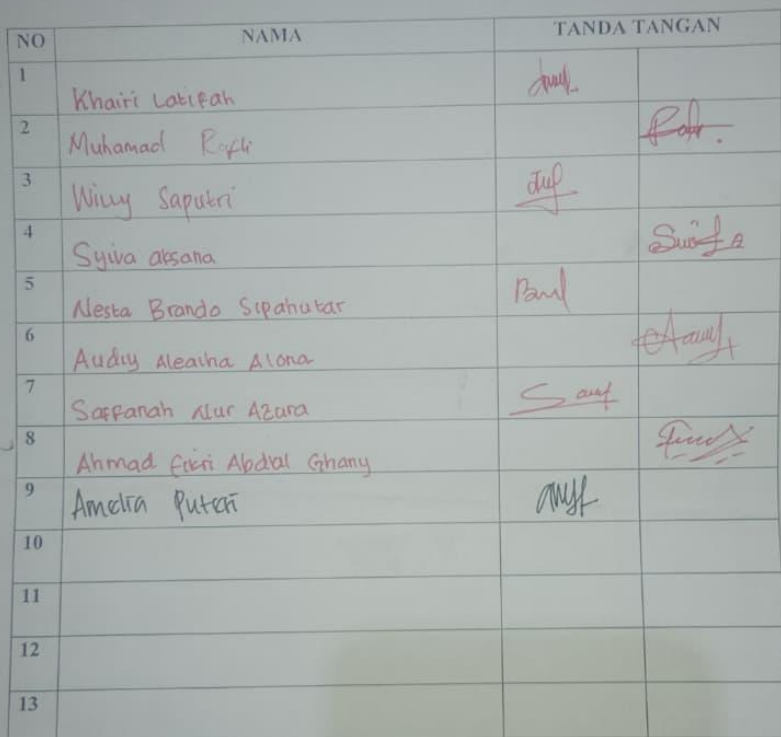 NO NAMA TANDA TANGAN
1 Khairi Latifah
2 Muhamad Rafli
3 Willy Saputri
4 Sylva aksana
5 Nesta Brando Sipahutar
6 Audry Aleacha Alona
7 Saffanah Nur Azura
8 Ahmad Fikri Abdial Ghany
9 Amelia Puteri
10
11
12
13